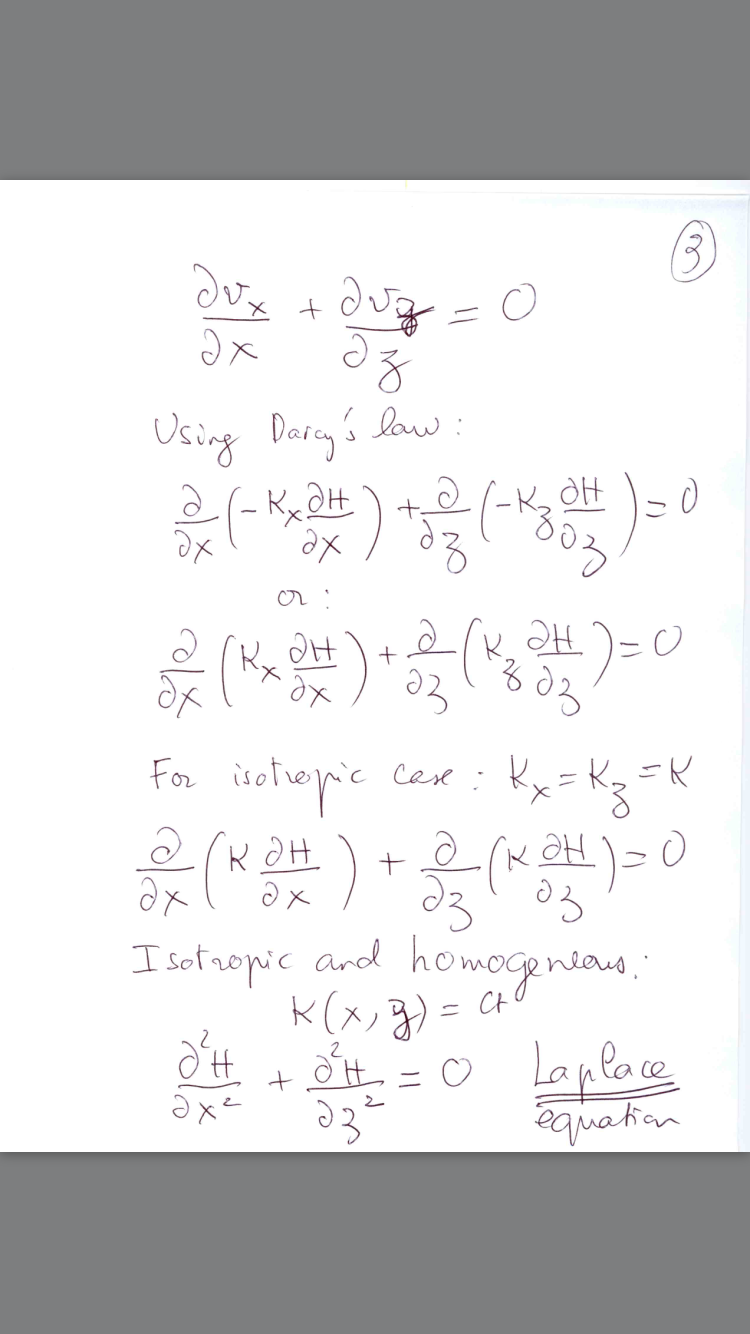 3
∂vx/∂x + ∂vz/∂z = 0
Using Darcy's law:
∂/∂x (-Kx ∂H/∂x) + ∂/∂z (-Kz ∂H/∂z) = 0
or:
∂/∂x (Kx ∂H/∂x) + ∂/∂z (Kz ∂H/∂z) = 0
For isotropic case: Kx = Kz = K
∂/∂x (K ∂H/∂x) + ∂/∂z (K ∂H/∂z) = 0
Isotropic and homogeneous:
K(x, z) = ct
∂²H/∂x² + ∂²H/∂z² = 0 Laplace
equation